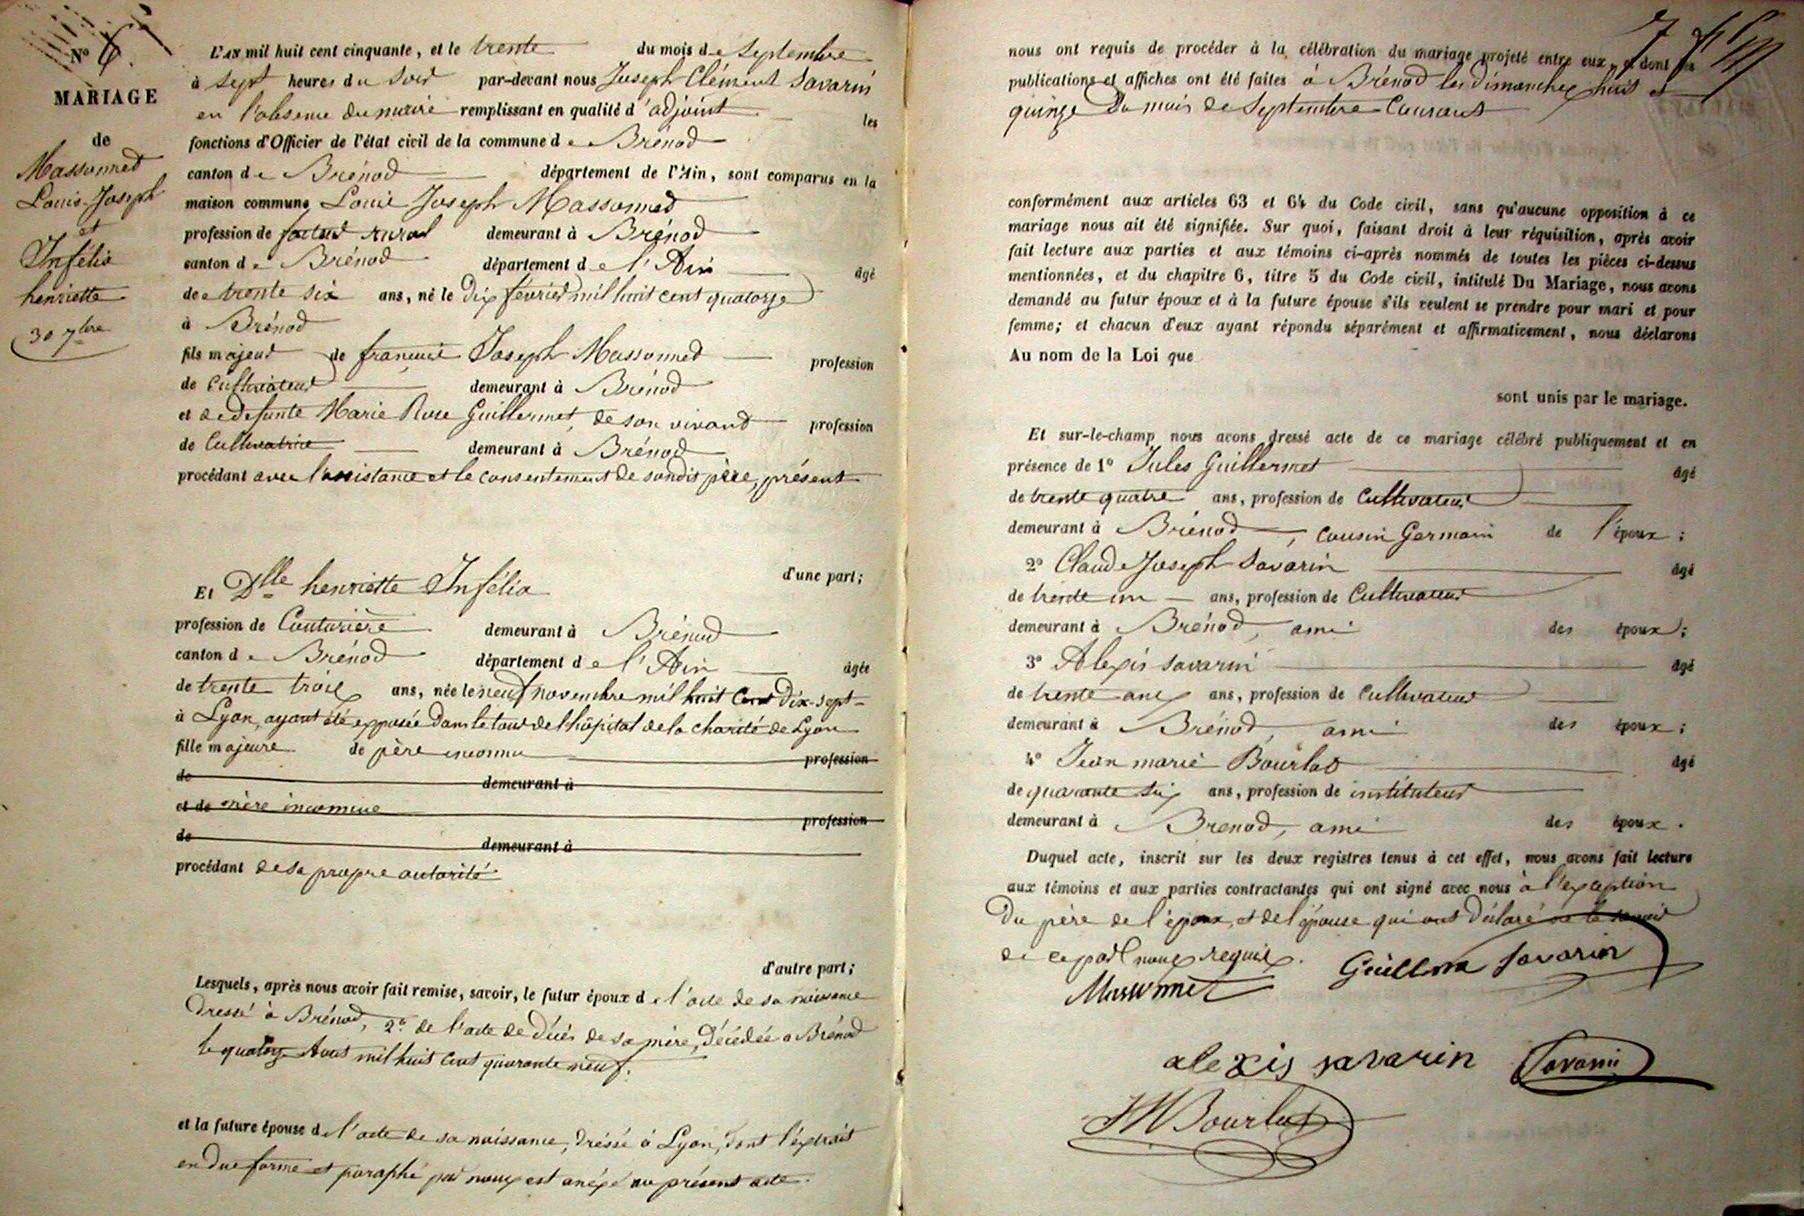 N° 6.
MARIAGE
de
Massonnet
Louis Joseph
et
Infélix
henriette
30 7bre
L'AN mil huit cent cinquante, et le trente du mois de Septembre
à Sept heures du soir par-devant nous Joseph Clément Savarin
en l'absence du maire remplissant en qualité d'adjoint les
fonctions d'Officier de l'état civil de la commune de Brénod
canton de Brénod département de l'Ain, sont comparus en la
maison commune Louis Joseph Massonnet
profession de facteur rural demeurant à Brénod
canton de Brénod département de l'Ain âgé
de trente six ans, né le dix février mil huit cent quatorze
à Brénod
fils majeur de françois Joseph Massonnet profession
de Cultivateur demeurant à Brénod
et de defunte Marie Rose Guillermet, de son vivant profession
de Cultivatrice demeurant à Brénod
procédant avec l'assistance et le consentement de sondit père, présent
d'une part;
Et Dlle henriette Infélix
profession de Couturière demeurant à Brénod
canton de Brénod département de l'Ain âgée
de trente trois ans, née le neuf novembre mil huit Cent Dix-sept
à Lyon, ayant été exposée dans le tour de l'hôpital de la charité de Lyon
fille majeure de père inconnu profession
de demeurant à
et de mère inconnue profession
de demeurant à
procédant de sa propre autorité
d'autre part;
Lesquels, après nous avoir fait remise, savoir, le futur époux de l'acte de sa naissance
dressé à Brénod, 2° de l'acte de décès de sa mère, Décédée à Brénod
le quatorze Aout mil huit cent quarante neuf.
et la future épouse de l'acte de sa naissance, dressé à Lyon, dont l'extrait
en due forme et paraphé par nous est anexé au présent acte.
7
nous ont requis de procéder à la célébration du mariage projeté entre eux, et dont les
publications et affiches ont été faites à Brénod les dimanches huit et
quinze du mois de Septembre Courant
conformément aux articles 63 et 64 du Code civil, sans qu'aucune opposition à ce
mariage nous ait été signifiée. Sur quoi, faisant droit à leur réquisition, après avoir
fait lecture aux parties et aux témoins ci-après nommés de toutes les pièces ci-dessus
mentionnées, et du chapitre 6, titre 5 du Code civil, intitulé Du Mariage, nous avons
demandé au futur époux et à la future épouse s'ils veulent se prendre pour mari et pour
femme; et chacun d'eux ayant répondu séparément et affirmativement, nous déclarons
Au nom de la Loi que
sont unis par le mariage.
Et sur-le-champ nous avons dressé acte de ce mariage célébré publiquement et en
présence de 1° Jules Guillermet âgé
de trente quatre ans, profession de Cultivateur
demeurant à Brénod, cousin Germain de l'époux;
2° Claude Joseph Savarin âgé
de trente un ans, profession de Cultivateur
demeurant à Brénod, ami des époux;
3° Alexis Savarin âgé
de trente ans ans, profession de Cultivateur
demeurant à Brénod, ami des époux;
4° Jean marie Bourlot âgé
de quarante six ans, profession de instituteur
demeurant à Brenod, ami des époux.
Duquel acte, inscrit sur les deux registres tenus à cet effet, nous avons fait lecture
aux témoins et aux parties contractantes qui ont signé avec nous à l'exception
Du père de l'époux, et de l'épouse qui ont déclaré ne le savoir
de ce par nous requis.
Massonnet Guillerm Savarin
alexis savarin Savarin
JM Bourlot